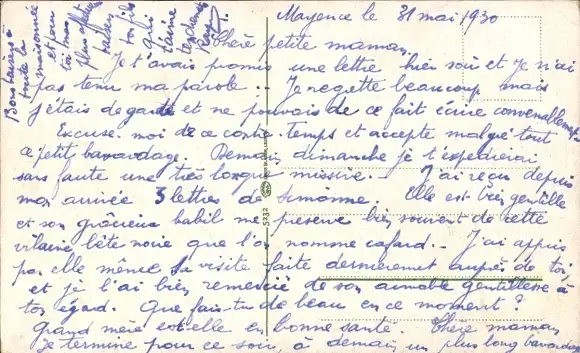 Mayence le 31 mai 1930
Chère petite maman,
Je t'avais promis une lettre hier soir et je n'ai
pas tenu ma parole... Je regrette beaucoup mais
j'étais de garde et ne pouvais de ce fait écrire convenablement
Excuse moi de ce contre temps et accepte malgré tout
ce petit bavardage. Demain dimanche je t'expédierai
sans faute une très longue missive... J'ai reçu depuis
mon arrivée 3 lettres de Simonne. Elle est très gentille
et son gracieux babil me préserve bien souvent de cette
vilaine bête noire que l'on nomme cafard... J'ai appris
par elle même sa visite faite dernièrement auprès de toi
et je l'ai bien remercié de son aimable gentillesse à
ton égard. Que fais-tu de beau en ce moment?
Grand mère est elle en bonne santé. Chère maman
je termine pour ce soir, à demain un plus long bavardage
Bons baisers à
toute la
maisonnée
et pour
toi mon
plus affectueux
baiser
ton fils
qui
t'aime
5933